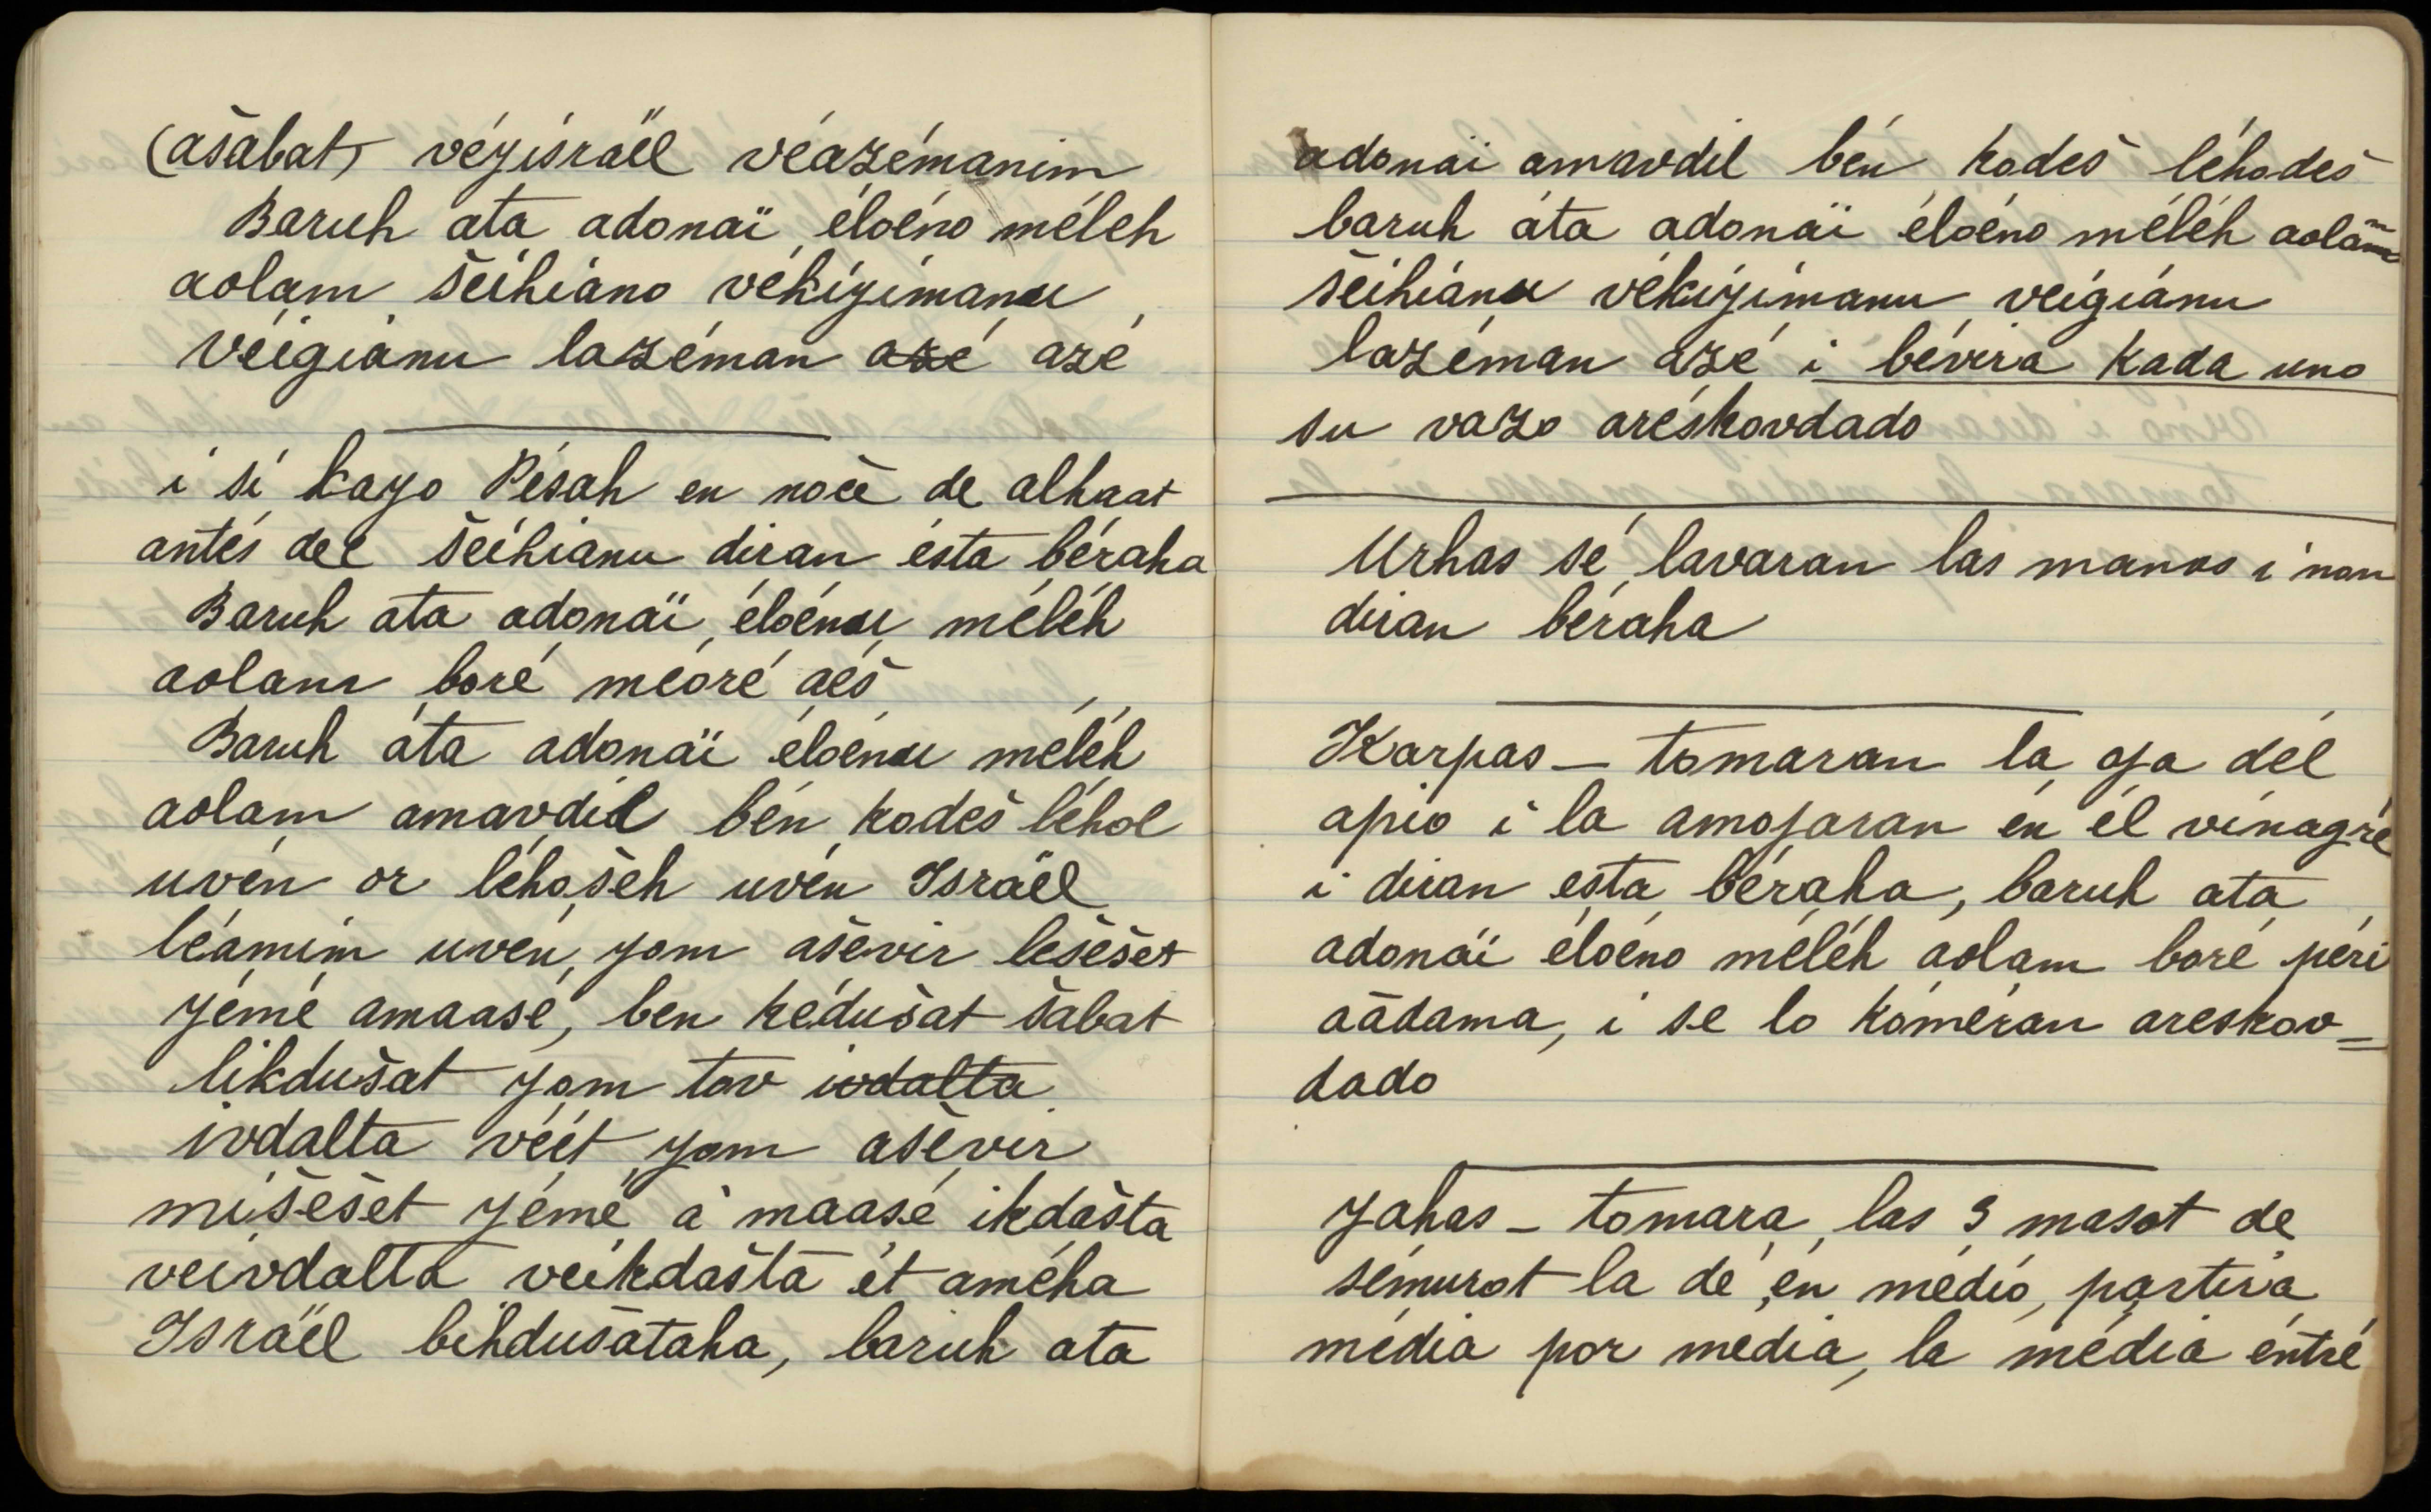 (ašabat) véyisraël véazémanim
Baruh ata adonaï éloéno méleh
aolam šeihiáno vékiyimanu
véigianu lazéman azé azé
i si kayo Pésah en noče de alhaat
antés del šeihianu diran ésta béraha
Baruh ata adonaï éloénu méléh
aolam boré méoré aéš
Baruh áta adonaï éloénu méléh
aolam amavdil bén kodéš léhol
uvén or léhošeh uvén Israël
léamim uvén yom aševir lešešet
yémé amaasé, ben kédušat šabat
likdušat yom tov ivdalta
ivdalta véét yom aševir
mišešet yémé a maasé ikdašta
veivdalta veikdašta ét améha
Israël bihdušataha, baruh ata
adonai amavdil bén kodeš léhodeš
baruh áta adonaï éloéno méléh aolam
šeihiánu vékiyimanu veigiánu
lazéman azé i bévira kada uno
su vazo aréskovdado
Urhas sé lavaran las manos i non
diran béraha
Karpas - tomaran la oja dél
apio i la amojaran én él vinagré
i diran esta béraha, baruh ata
adonáï éloéno méléh aolam boré péri
aádama, i se lo koméran areskov=
dado
Yahas - tomara las 3 masot de
sémurot la dé én médio, partira
média por media, la média éntré